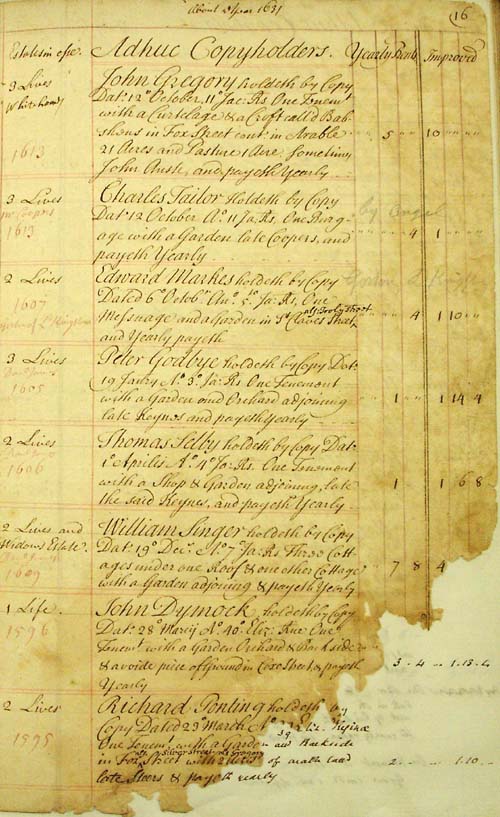 About Year 1631
16
Estates in esse. Adhuc Copyholders. Yearly Rent Improved
3 Lives John Gregory holdeth by Copy
Dat: 12° October, 11° Jac: Rs. One Tenemt
with a Curtelage & a Croft call'd Bab-
in Fox Street cont: in Arable " " 5 " " 10 " "
1613 21 Acres and Pasture 1 Acre, sometims
John and payeth Yearly
3 Lives Charles Tailor Holdeth by Copy
Dat: 12 October A° 11 Ja: Rs, One Burg-
1613 age with a Garden late Coopers, and " " 4 1 " "
payeth Yearly
2 Lives Edward Markes holdeth by Copy
1607 Dated 6° Octobr An° 5° Ja: Rs, One
Messuage and a Garden in St Claves Street als Tooly Street " " 4 1 10 "
and Yearly payeth
3 Lives Peter Godbye holdeth by Copy Dat:
19 Janry A° 3° Ja: Rs One Tenement
1605 with a Garden and Orchard adjoining " 1 " 1 14 4
late Keynes and payeth Yearly
2 Lives Thomas Selby holdeth by Copy Dat:
1° Aprilis A° 4° Ja: Rs. One Tenement
1606 with a Shop & Garden adjoining, late 1 1 6 8
the said Keynes, and payeth Yearly
2 Lives and William Singer holdeth by Copy
Widows Estate. Dat: 19° Dec: A° 7° Ja: Rs Three Cott-
1609 ages under one Roof & one other Cottage 7 8 4
with a Garden adjoining & payeth Yearly
1 Life. John Dymock, holdeth by Copy
1596 Dat: 28° Marcij A° 40° Eliz: Rne One
Tenemt with a Garden Orchard & Backside
& a voide piece of Ground in Coxe Street, & payeth 3 - 4 - 1 - 13 - 4
Yearly
2 Lives Richard Ponting holdeth by
Copy Dated 23° March A° Eliz: Reginæ
1595 39
One Tenemt with a Garden and Backside
als Silver Street
in Fox Street with 2 acres of arable land 2 - 1 - 10 -
late Steers & payeth yearly